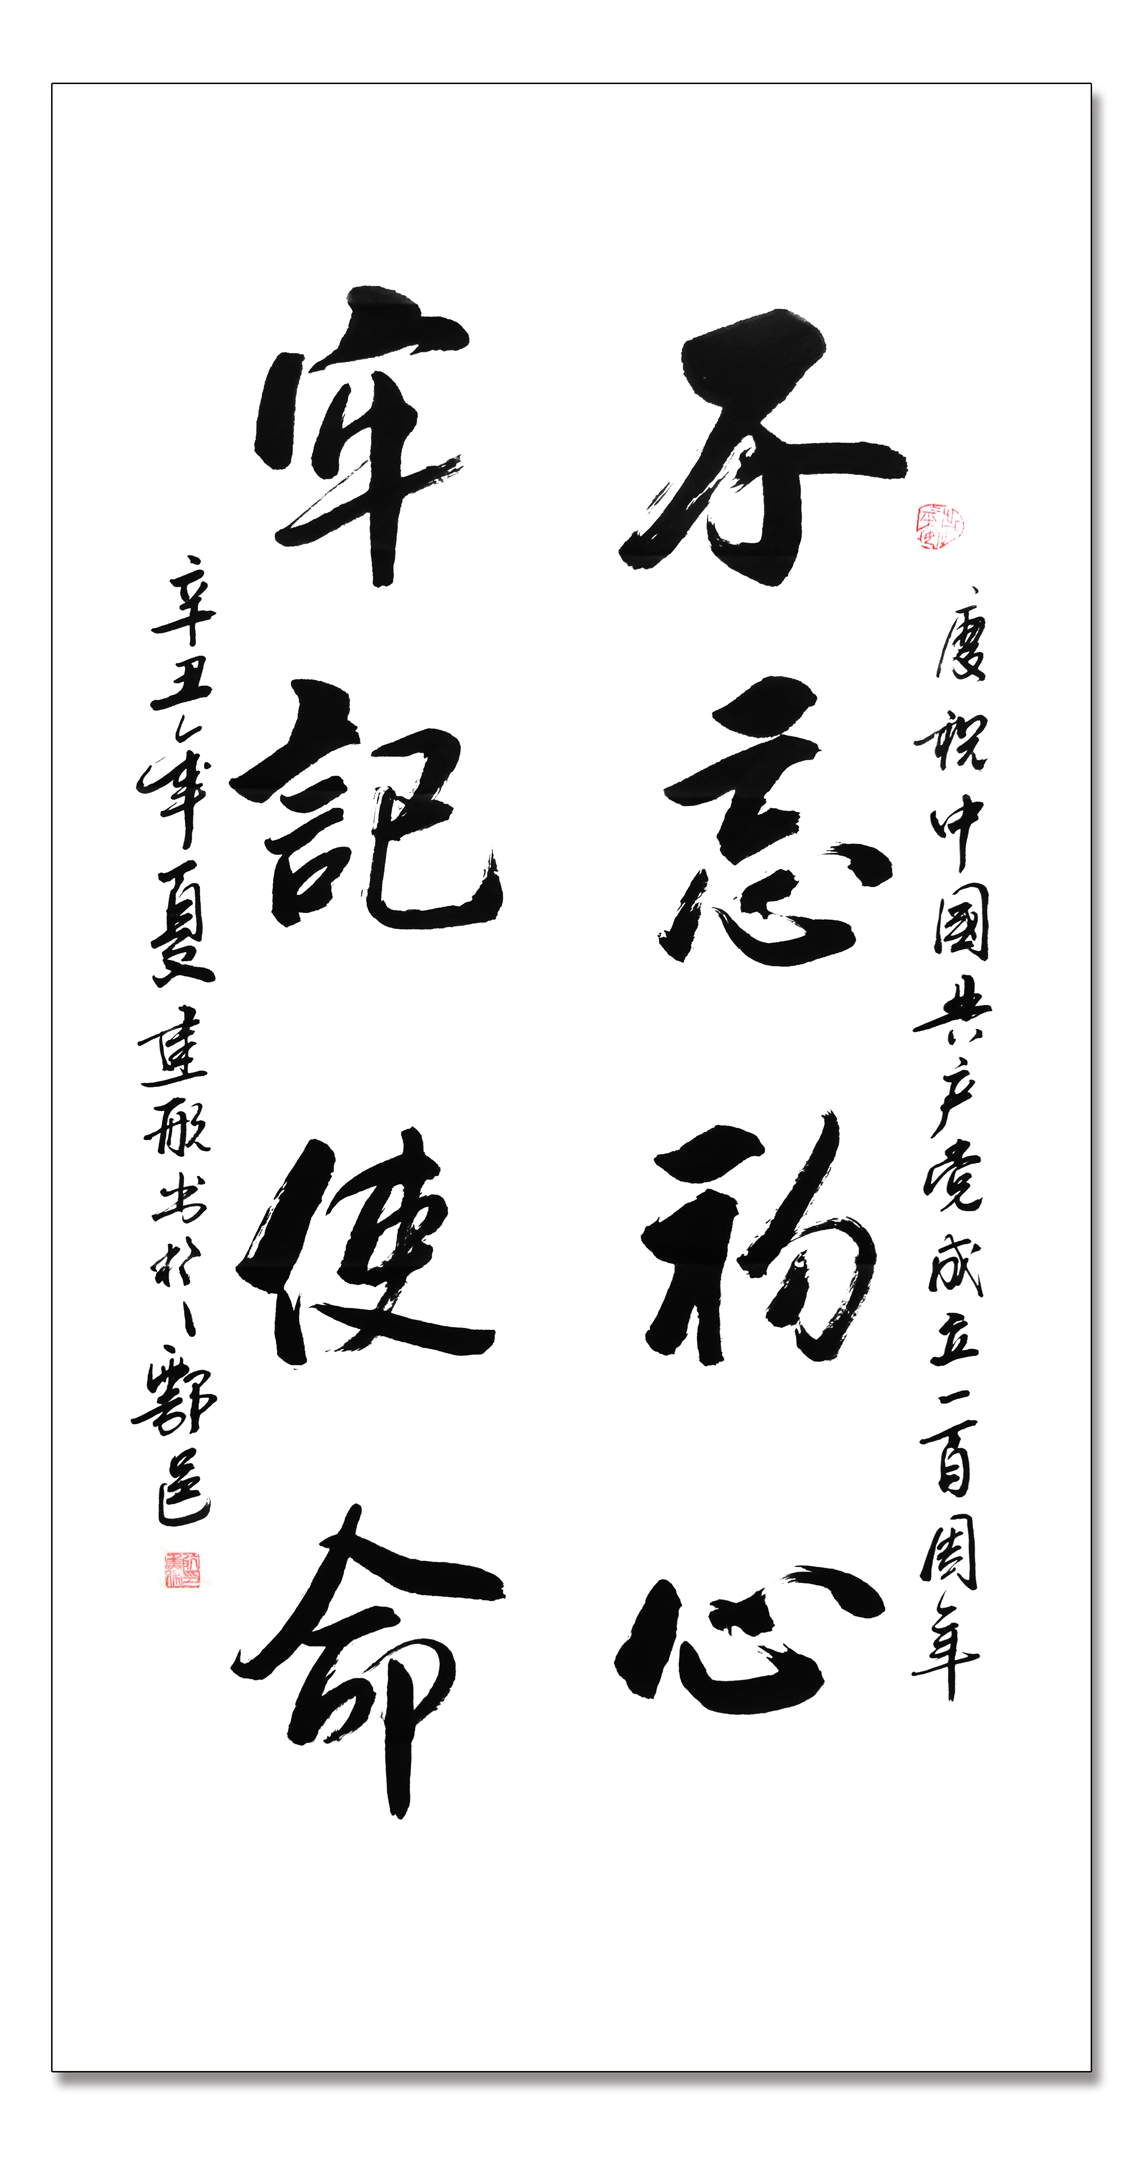 慶祝中國共产党成立一百周年
不忘初心
牢記使命
辛丑年夏建航书於鄠邑